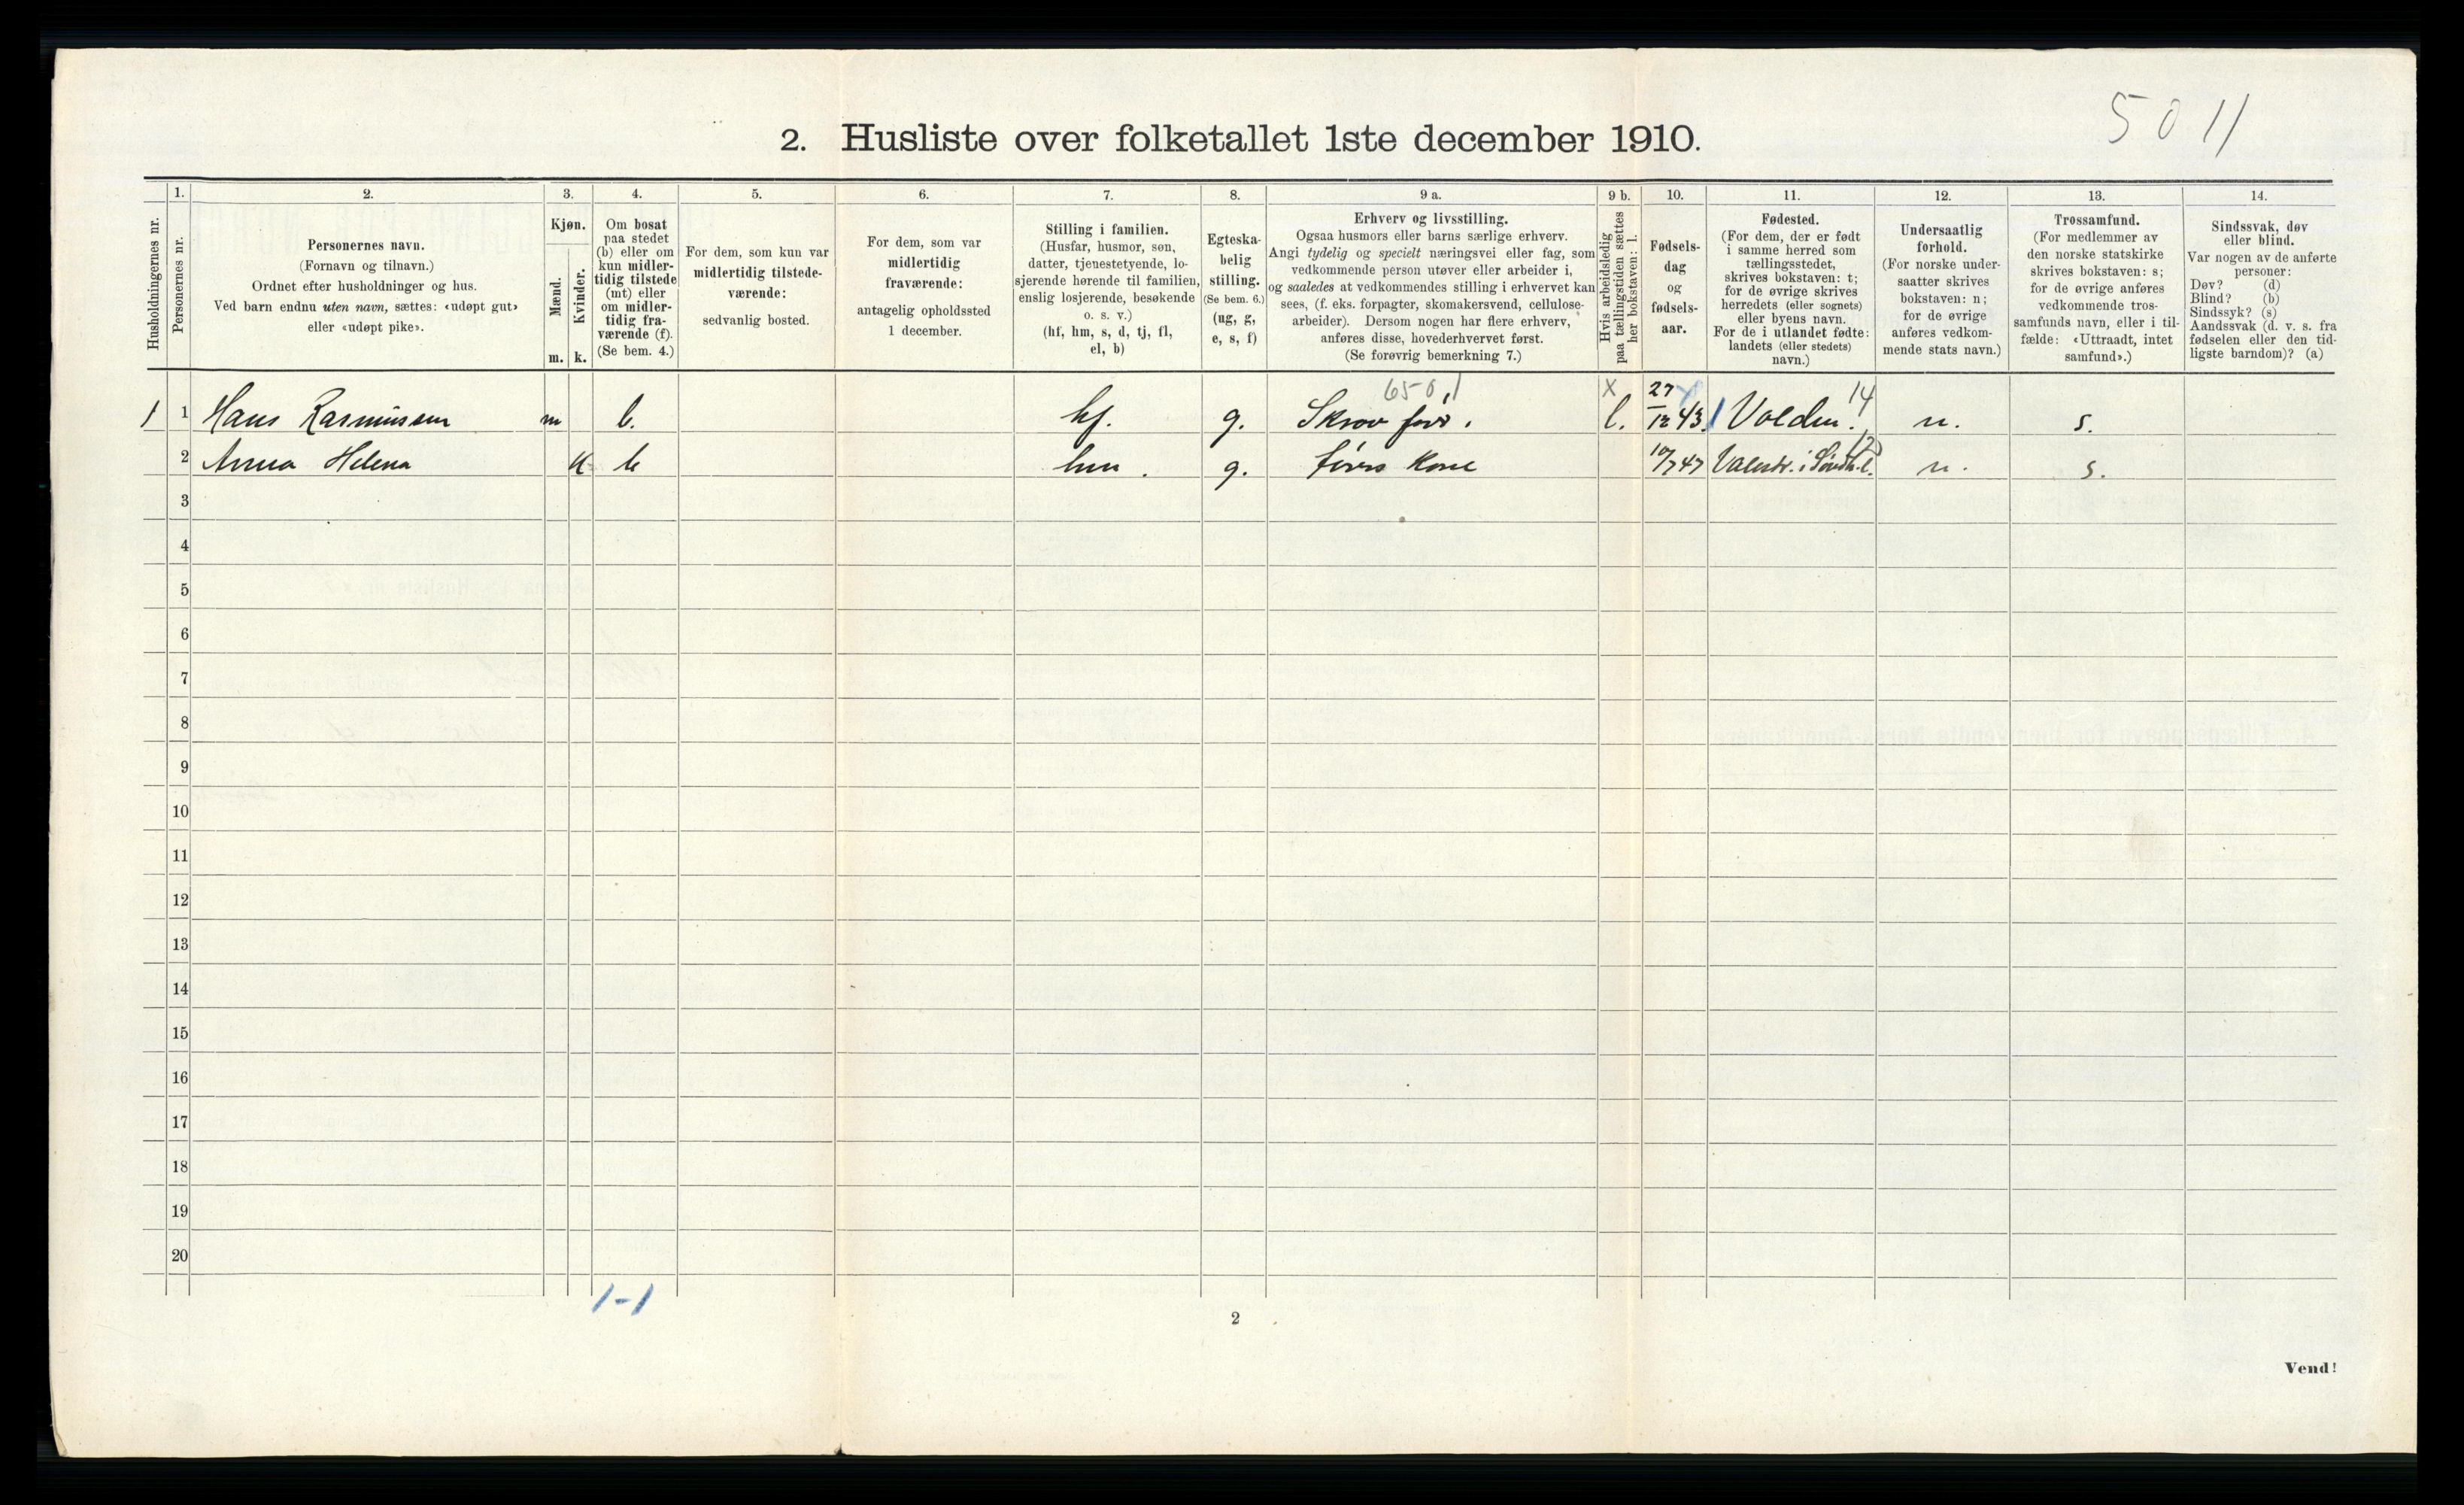 50 11
2. Husliste over folketallet 1ste december 1910.
Husholdningernes nr.
1.
Personernes nr.
2.
Personernes navn.
(Fornavn og tilnavn.)
Ordnet efter husholdninger og hus.
Ved barn endnu uten navn, sættes: «udøpt gut»
eller «udøpt pike».
3.
Kjøn.
Mænd.
Kvinder.
m. k.
4.
Om bosat
paa stedet
(b) eller om
kun midler-
tidig tilstede
(mt) eller
om midler-
tidig fra-
værende (f).
(Se bem. 4.)
5.
For dem, som kun var
midlertidig tilstede-
værende:
sedvanlig bosted.
6.
For dem, som var
midlertidig
fraværende:
antagelig opholdssted
1 december.
7.
Stilling i familien.
(Husfar, husmor, søn,
datter, tjenestetyende, lo-
sjerende hørende til familien,
enslig losjerende, besøkende
o. s. v.)
(hf, hm, s, d, tj, fl,
el, b)
8.
Egteska-
belig
stilling.
(Se bem. 6.)
(ug, g,
e, s, f)
9 a.
Erhverv og livsstilling.
Ogsaa husmors eller barns særlige erhverv.
Angi tydelig og specielt næringsvei eller fag, som
vedkommende person utøver eller arbeider i,
og saaledes at vedkommendes stilling i erhvervet kan
sees, (f. eks. forpagter, skomakersvend, cellulose-
arbeider). Dersom nogen har flere erhverv,
anføres disse, hovederhvervet først.
(Se forøvrig bemerkning 7.)
9 b.
Hvis arbeidsledig
paa tællingstiden sættes
her bokstaven: l.
10.
Fødsels-
dag
og
fødsels-
aar.
11.
Fødested.
(For dem, der er født
i samme herred som
tællingsstedet,
skrives bokstaven: t;
for de øvrige skrives
herredets (eller sognets)
eller byens navn.
For de i utlandet fødte:
landets (eller stedets)
navn.)
12.
Undersaatlig
forhold.
(For norske under-
saatter skrives
bokstaven: n;
for de øvrige
anføres vedkom-
mende stats navn.)
13.
Trossamfund.
(For medlemmer av
den norske statskirke
skrives bokstaven: s;
for de øvrige anføres
vedkommende tros-
samfunds navn, eller i til-
fælde: «Uttraadt, intet
samfund».)
14.
Sindssvak, døv
eller blind.
Var nogen av de anførte
personer:
Døv? (d)
Blind? (b)
Sindssyk? (s)
Aandssvak (d. v. s. fra
fødselen eller den tid-
ligste barndom)? (a)
650.1 X 14
1 1 Hans Rasmussen m b. hf. g. l. 27/12 43. Volden. n. s.
12
2 Anna Helena K b hm. g. Kone 10/7 47 n. s.
3
4
5
6
7
8
9
10
11
12
13
14
15
16
17
18
19
20
1-1
2
Vend!